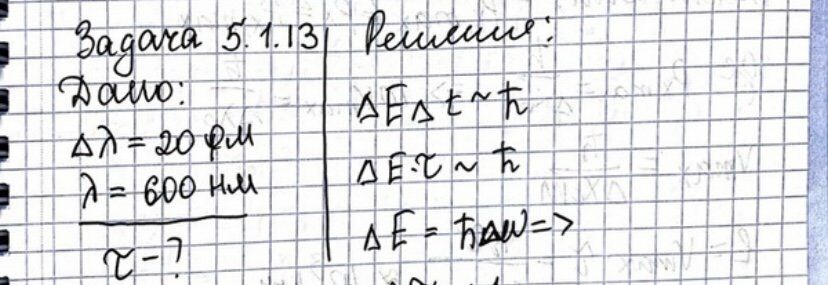 Задача 5.1.13
Дано:
Δλ = 20 фм
λ = 600 нм
τ - ?
Решение:
ΔEΔt ~ ħ
ΔE·τ ~ ħ
ΔE = ħΔω =>